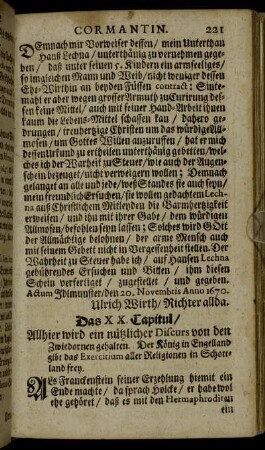 CORMANTIN. 221
DEmnach mir Vorweiser dessen / mein Unterthan
Hanß Lechna / unterthänig zu vernehmen gege-
ben / daß unter seinen 5. Kindern ein armseeliges /
so imgleichen Mann und Weib / nicht weniger dessen
Ehe-Wirthin an beyden Füssen contract: Sinte-
mahl er aber wegen grosser Armut / zu Curirung des-
sen keine Mittel / auch mit seiner Hand-Arbeit ihnen
kaum die Lebens-Mittel schaffen kan / dahero ge-
drungen / treuhertzige Christen um das würdige All-
mosen / um Gottes Willen anzuruffen / hat er mich
dessen Urkund zu ertheilen unterthänig gebetten / wel-
ches ich der Warheit zu Steuer / wie auch der Augen-
schein bezeuget / nicht verweigern wollen; Demnach
gelanget an alle und jede / weß Standes sie auch seyn /
mein freundlich Ersuchen / sie wollen gedachtem Lech-
na auß Christlichem Mitleyden die Barmhertzigkeit
erweisen / und ihn mit ihrer Gabe / dem würdigen
Allmosen / befohlen seyn lassen; Solches wird Gott
der Allmächtige belohnen / der arme Mensch auch
mit seinem Gebett nicht in Vergessenheit stellen. Der
Warheit zu Steuer habe ich / auf Hansen Lechna
gebührendes Ersuchen und Bitten / ihm diesen
Schein verfertiget / zugestellet / und gegeben.
Actum Adlmunster / den 20. Novembris Anno 1670.
Ulrich Wirth / Richter allda.
Das XX. Capitul /
Allhier wird ein nützlicher Discurs von den
Zwiedornen gehalten. Der König in Engelland
gibt das Exercitium aller Religionen in Schott-
land frey.
ALs Franckenstein seiner Erzehlung hiemit ein
Ende machte / da sprach Holcke / er habe wol
ehe gehöret / daß es mit den Hermaphroditen
ein